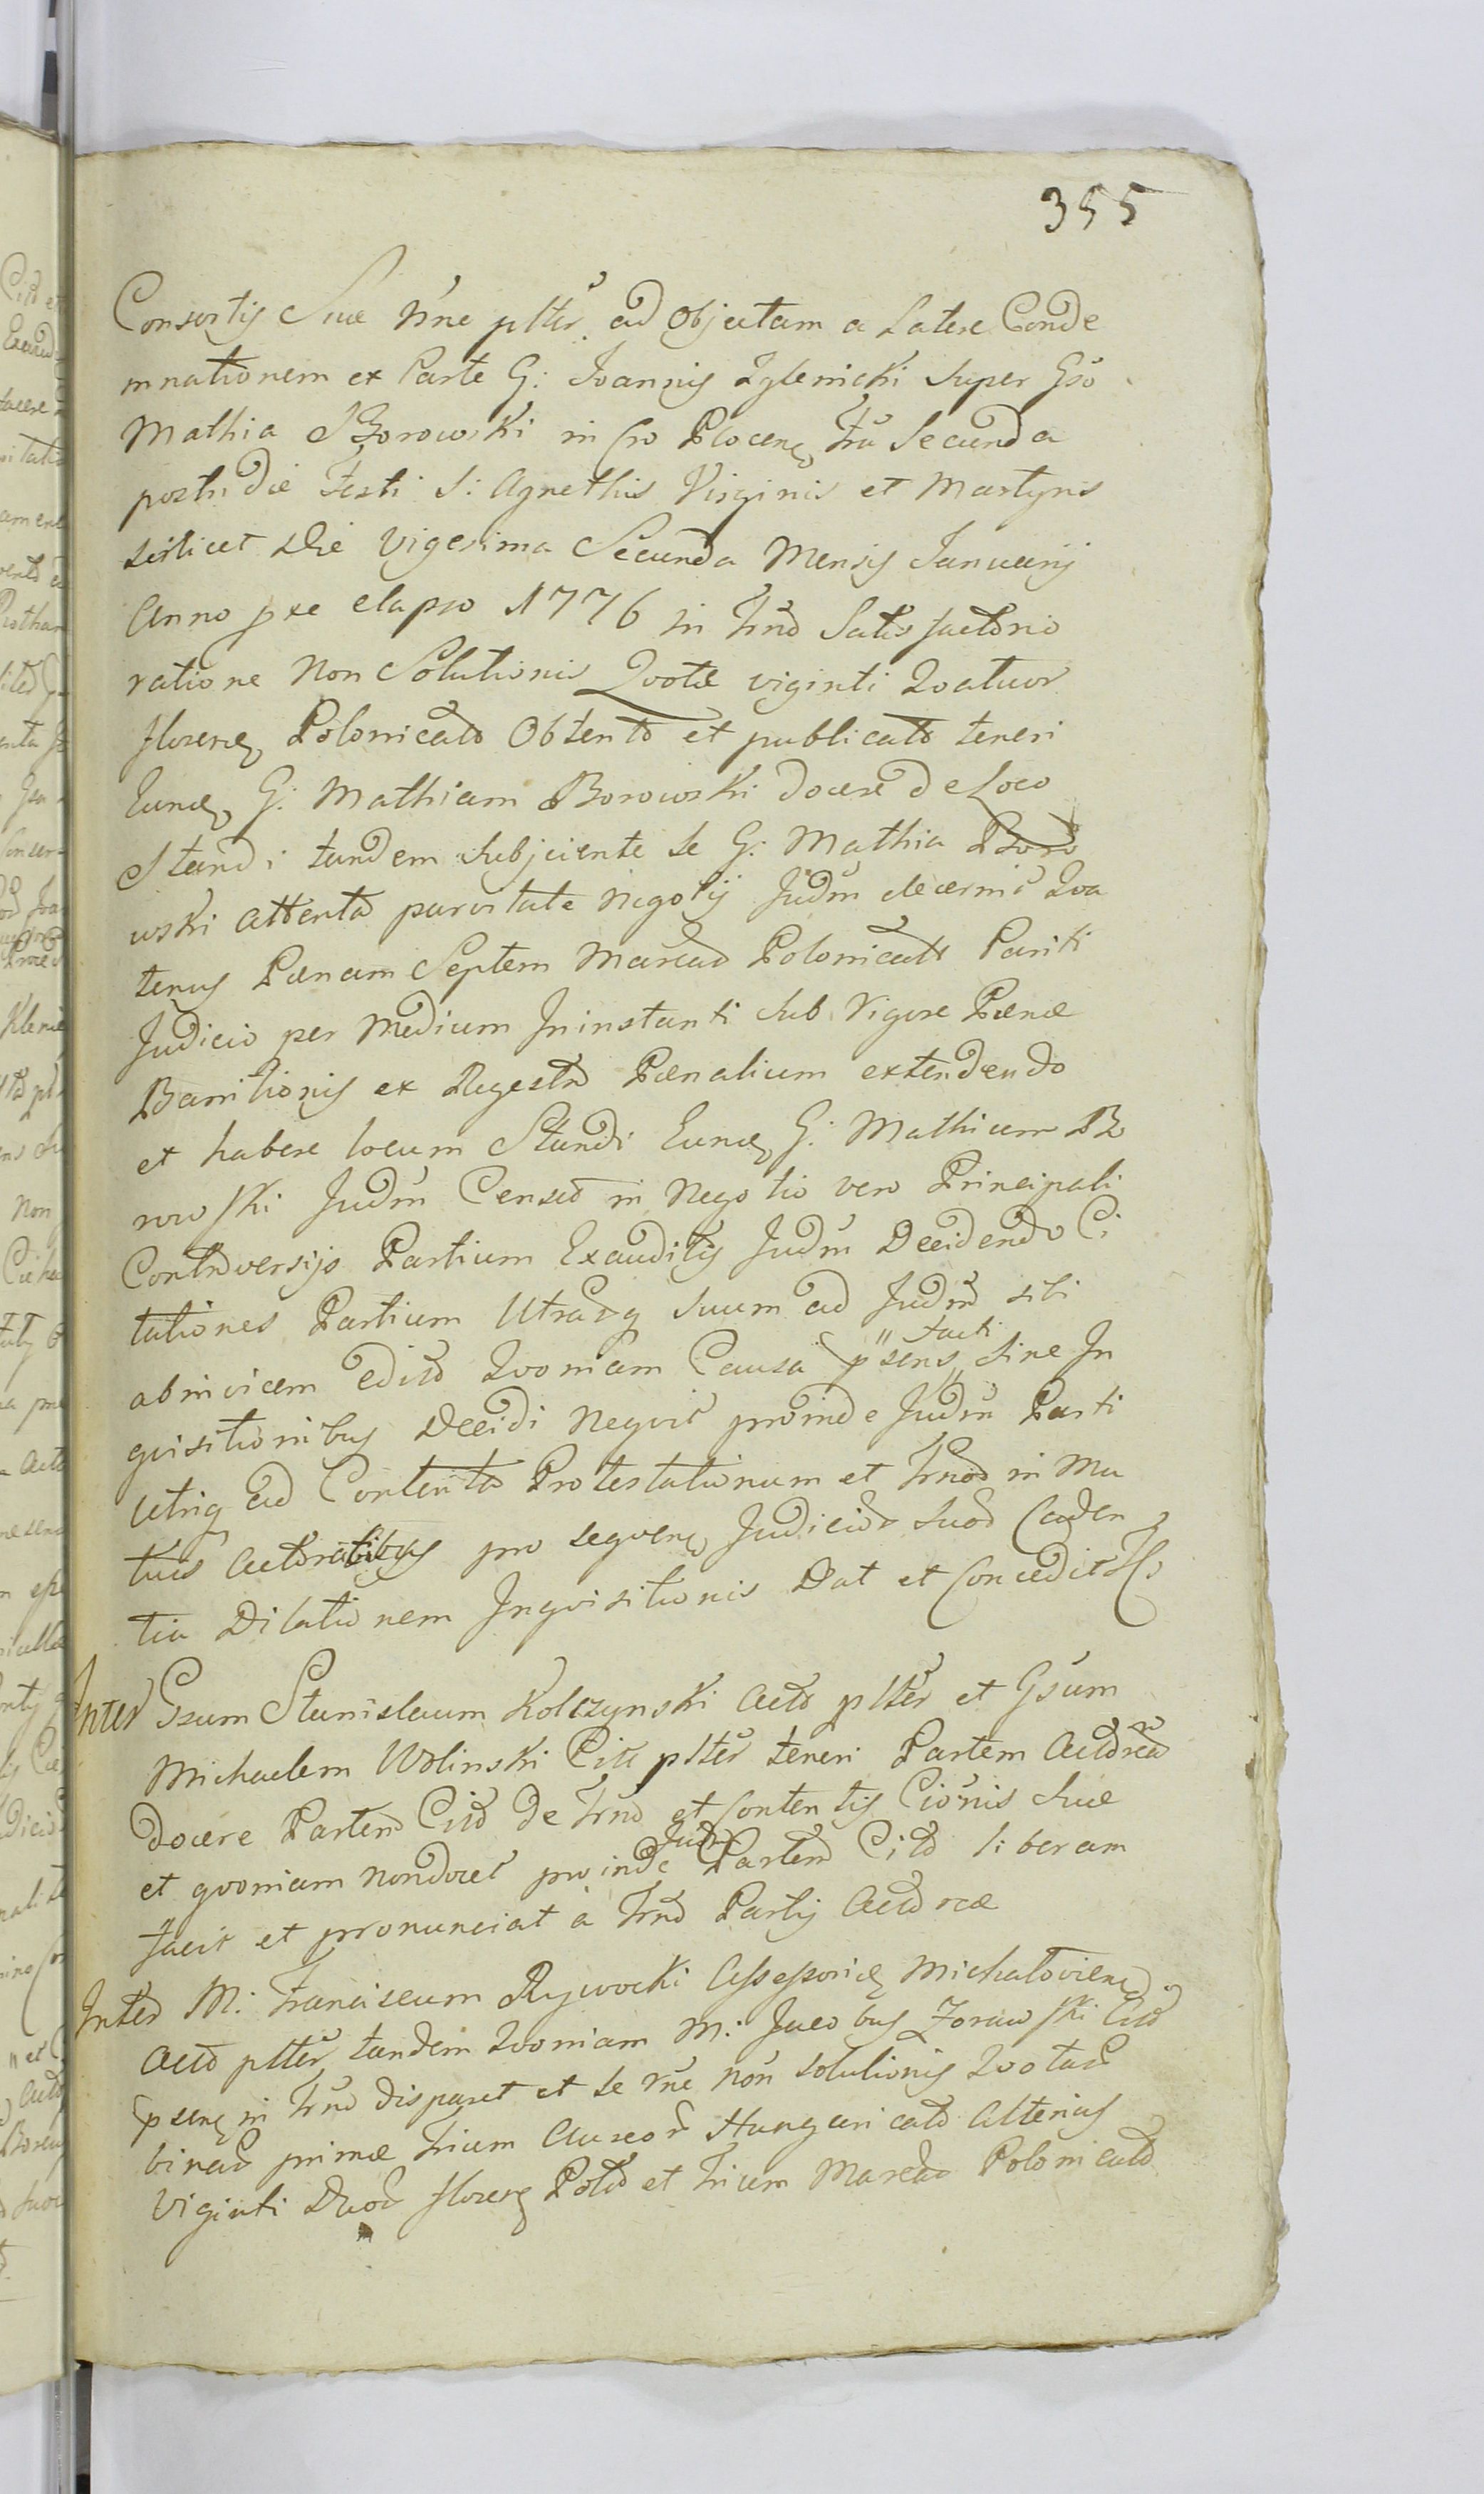 355
Consortis Suae nne pltr. ad Objectam a Latere Conde
mnationem ex Parte G: Joannis Zglenicki Super Gso
Mathia Borowski in Cro Plocen, fra Secunda
postridie Festi S: Agnethis Virginis et Martyris
scilicet Die Vigesima Secunda Mensis Januarij
Anno prae elapso 1776 in Trno Satisfactorio
ratione Non Solutionis Qvotae viginti Qvatuor
floren, Polonical Obtento et publicato teneri
Eund, G: Mathiam Borowski docere de Loco
Standi tandem Subjiciente se G: Mathia Boro
wski attenta paritate Negotij Judm decernit Qva
tenus Paenam Septem Marcar Polonical Pariti
Judicio per Medium Ininstanti Sub Vigore Paenae
Bannitionis ex Regestro Paenalium extendendo
et habere locum Standi Eund, G: Mathiam Bo
rowski Judm Censet in Negotio vero Principali
Controversijs Partium Exauditis Judm Decidendo Ci
tationes Partium Utrarq Suum ad Judm sibi
abinvicem edito Qvoniam Causa psens facti Sine In
qvisitionibus Decidi Neqvit proinde Judm Parti
Utriq ad Contenta Protestationum et Trnor in Mu
tuis Actoratibus pro seqven, Judicior Suor Caden
tia Dilationem Inqvisitionis Dat et Concedit
Inter Gsum Stanislaum Kolczynski Act pltr et Gsum
Michaelem Wolinski Cit pltr teneri Partem Actorea
docere Partem Cit de Trno et Contentis Cionis Suae
et qvoniam nondocet proinde Judm Partem Cit liberam
facit et pronunciat a Trno Partis Actoreae
Inter M: Franciscum Rywocki Assessorie, Michalovien,
Act pltr tandem Qvoniam M: Jacobus Zorawski Cit
psens, in Trno disparet et se rne non solutionis Qvotar
binar primae trium Aureor Hungarical Alterius
Viginti Duor floren Pol et trium Marcar Polonical